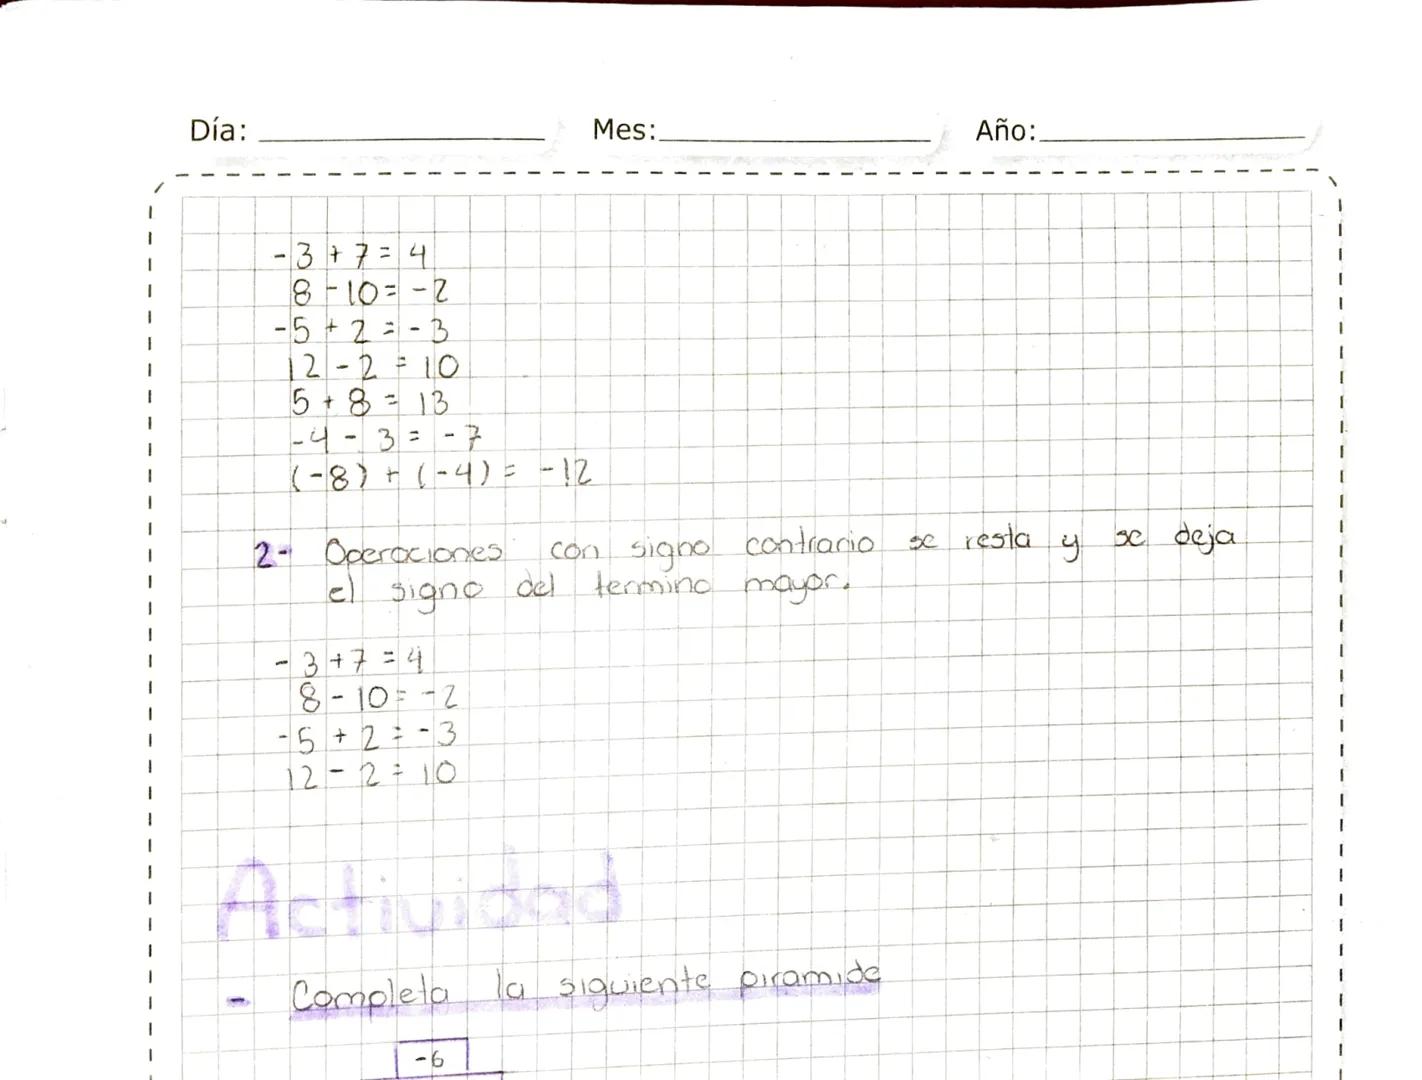 Día: Mes: Año:
-3 + 7 = 4
8 - 10 = -2
-5 + 2 = -3
12 - 2 = 10
5 + 8 = 13
-4 - 3 = -7
(-8) + (-4) = -12
2- Operaciones con signo contrario se resta y se deja
el signo del termino mayor.
-3 + 7 = 4
8 - 10 = -2
-5 + 2 = -3
12 - 2 = 10
Actividad
- Completa la siguiente piramide
-6